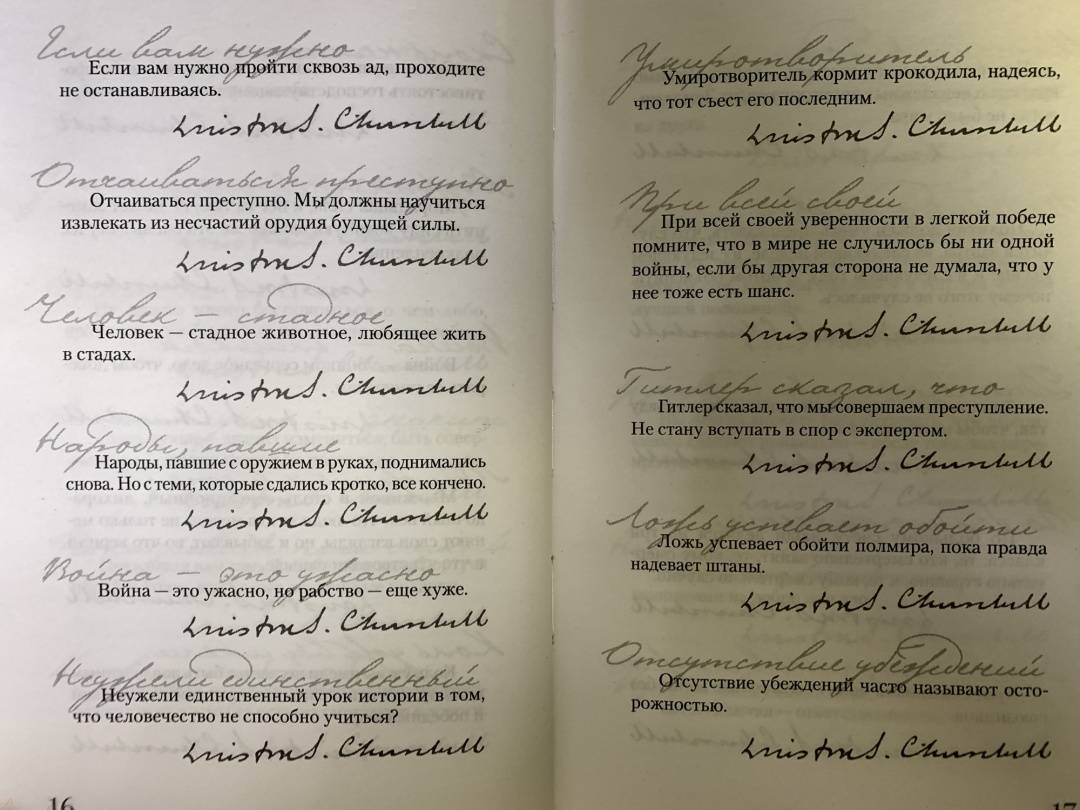 Если вам нужно
Если вам нужно пройти сквозь ад, проходите
не останавливаясь.
Winston S. Churchill
Отчаиваться преступно
Отчаиваться преступно. Мы должны научиться
извлекать из несчастий орудия будущей силы.
Winston S. Churchill
Человек — стадное
Человек — стадное животное, любящее жить
в стадах.
Winston S. Churchill
Народы, павшие
Народы, павшие с оружием в руках, поднимались
снова. Но с теми, которые сдались кротко, все кончено.
Winston S. Churchill
Война — это ужасно
Война — это ужасно, но рабство — еще хуже.
Winston S. Churchill
Неужели единственный
Неужели единственный урок истории в том,
что человечество не способно учиться?
Winston S. Churchill
16
Умиротворитель
Умиротворитель кормит крокодила, надеясь,
что тот съест его последним.
Winston S. Churchill
При всей своей
При всей своей уверенности в легкой победе
помните, что в мире не случилось бы ни одной
войны, если бы другая сторона не думала, что у
нее тоже есть шанс.
Winston S. Churchill
Гитлер сказал, что
Гитлер сказал, что мы совершаем преступление.
Не стану вступать в спор с экспертом.
Winston S. Churchill
Ложь успевает обойти
Ложь успевает обойти полмира, пока правда
надевает штаны.
Winston S. Churchill
Отсутствие убеждений
Отсутствие убеждений часто называют осто-
рожностью.
Winston S. Churchill